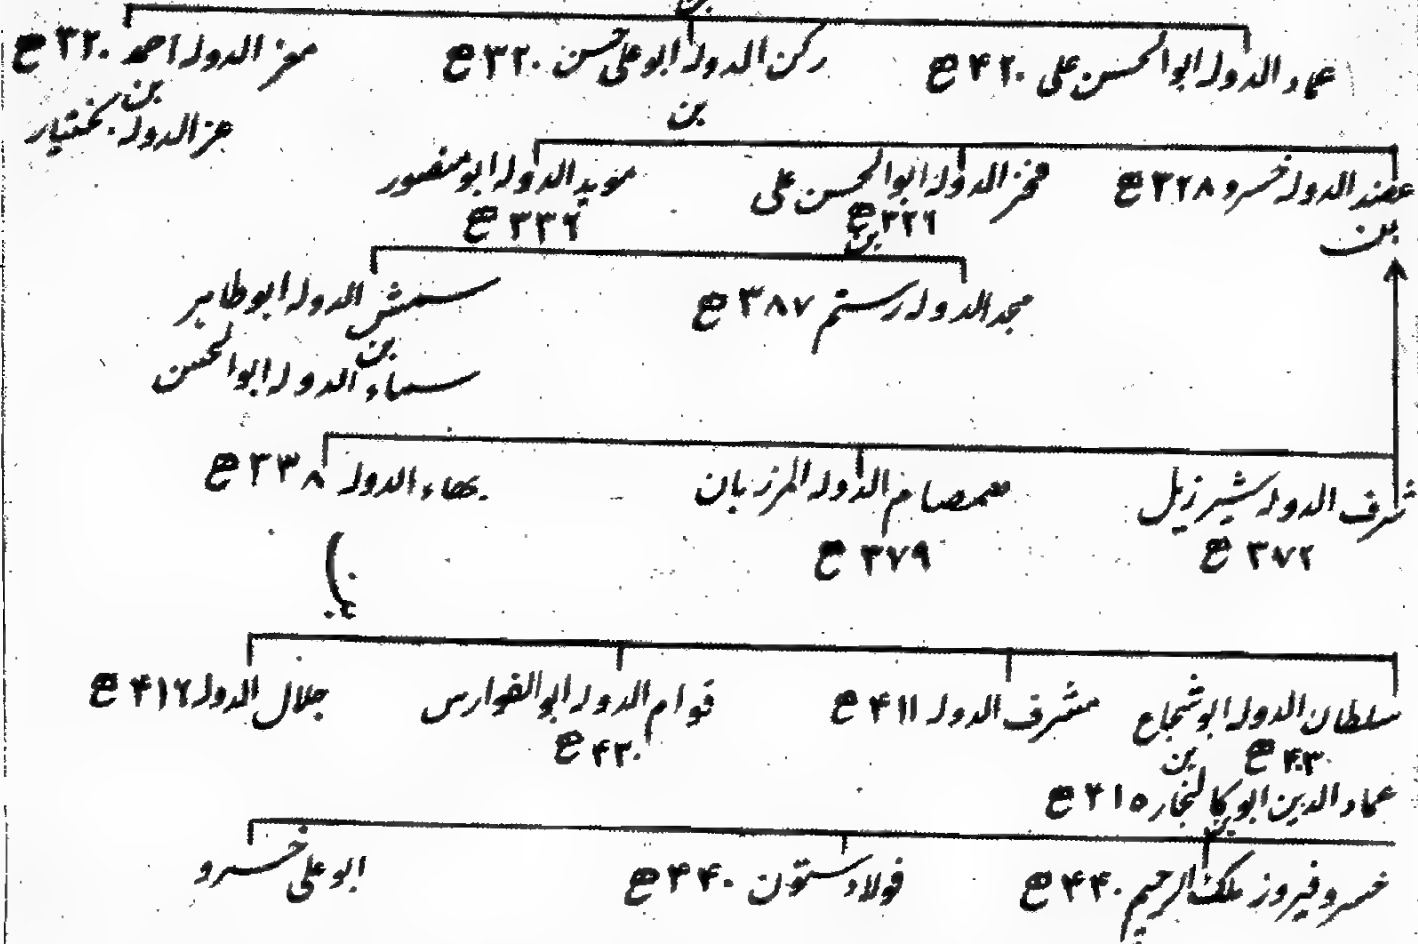 بن
عماد الدولہ ابوالحسن علی ۴۲۰ھ رکن الدولہ ابوعلی حسن ۳۲۰ھ معز الدولہ احمد ۳۲۰ھ
بن بن
عز الدولہ بختیار
عضد الدولہ خسرو ۳۲۸ھ فخر الدولہ ابوالحسن علی ۳۲۶ھ موید الدولہ ابو منصور ۳۳۶ھ
بن بن
مجد الدولہ رستم ۳۸۷ھ شمس الدولہ ابوطاہر
بن
سماء الدولہ ابوالحسن
شرف الدولہ شیرزیل ۳۷۲ھ صمصام الدولہ المرزبان ۳۷۹ھ بہاء الدولہ ۳۳۸ھ
سلطان الدولہ ابو شجاع ۴۰۳ھ مشرف الدولہ ۴۱۱ھ قوام الدولہ ابو الفوارس ۴۳۰ھ جلال الدولہ ۴۱۶ھ
بن
عماد الدین ابو کالنجار ۴۱۵ھ
بن
خسرو فیروز ملک الرحیم ۴۴۰ھ فولاد ستون ۴۴۰ھ ابو علی خسرو